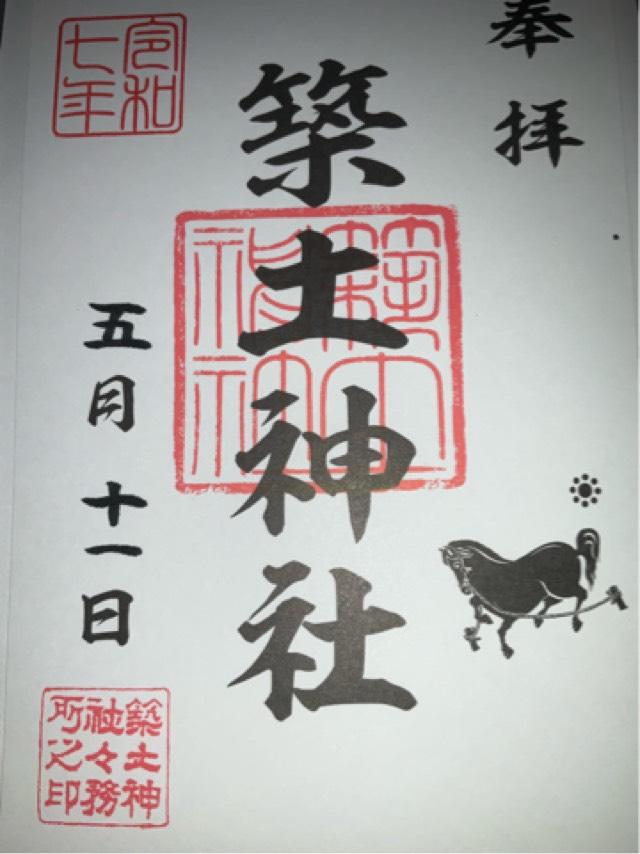 奉拝
築土神社
築土神社
令和七年
五月十一日
築土神社々務所之印